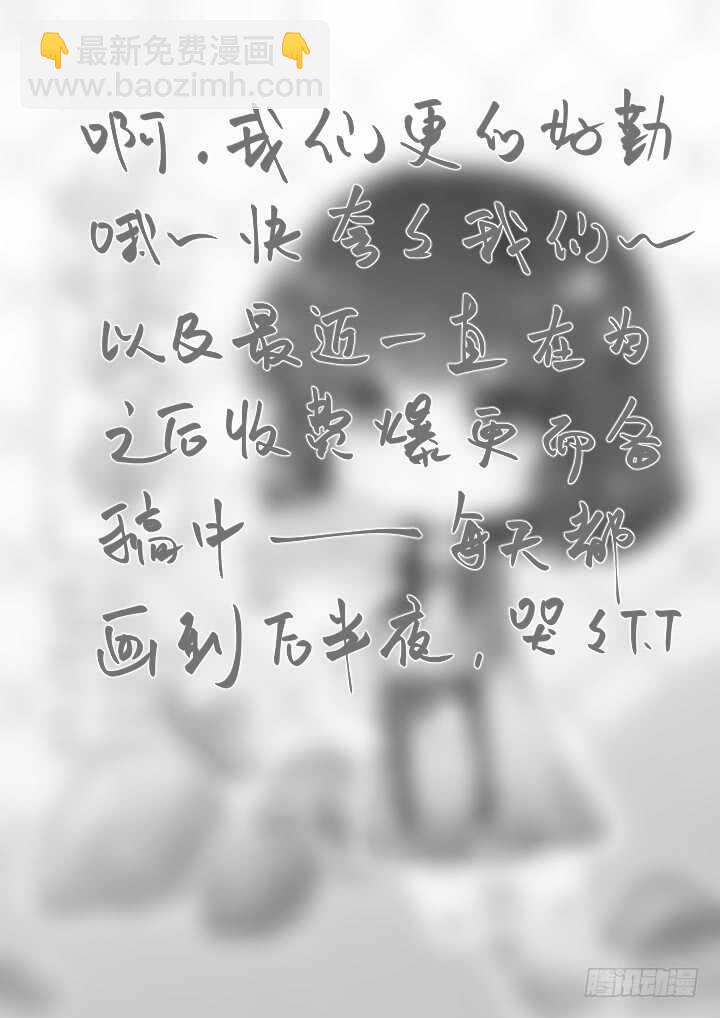 👇最新免费漫画👇
www.baozimh.com
啊，我们更的好勤
哦～快夸々我们～
以及最近一直在为
之后收费爆更而备
稿中——每天都
画到后半夜，哭々T.T
腾讯动漫